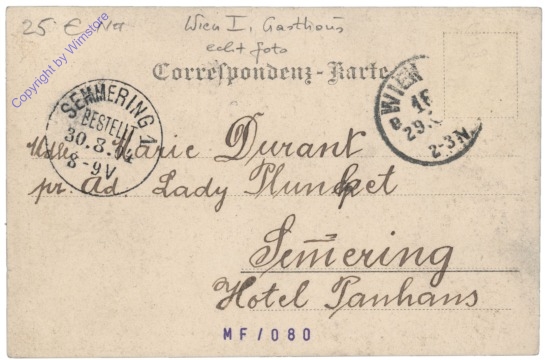 25 €
Wien I, Gasthaus
echt foto
Copyright by Wimstore
Correspondenz-Karte
SEMMERING 1
BESTELLT
30.8.
8-9V
WIEN
29.
2-3.N
Mlle Marie Durant
pr. Ad. Lady Plunket
Sem̄ering
Hotel Panhans
MF/080